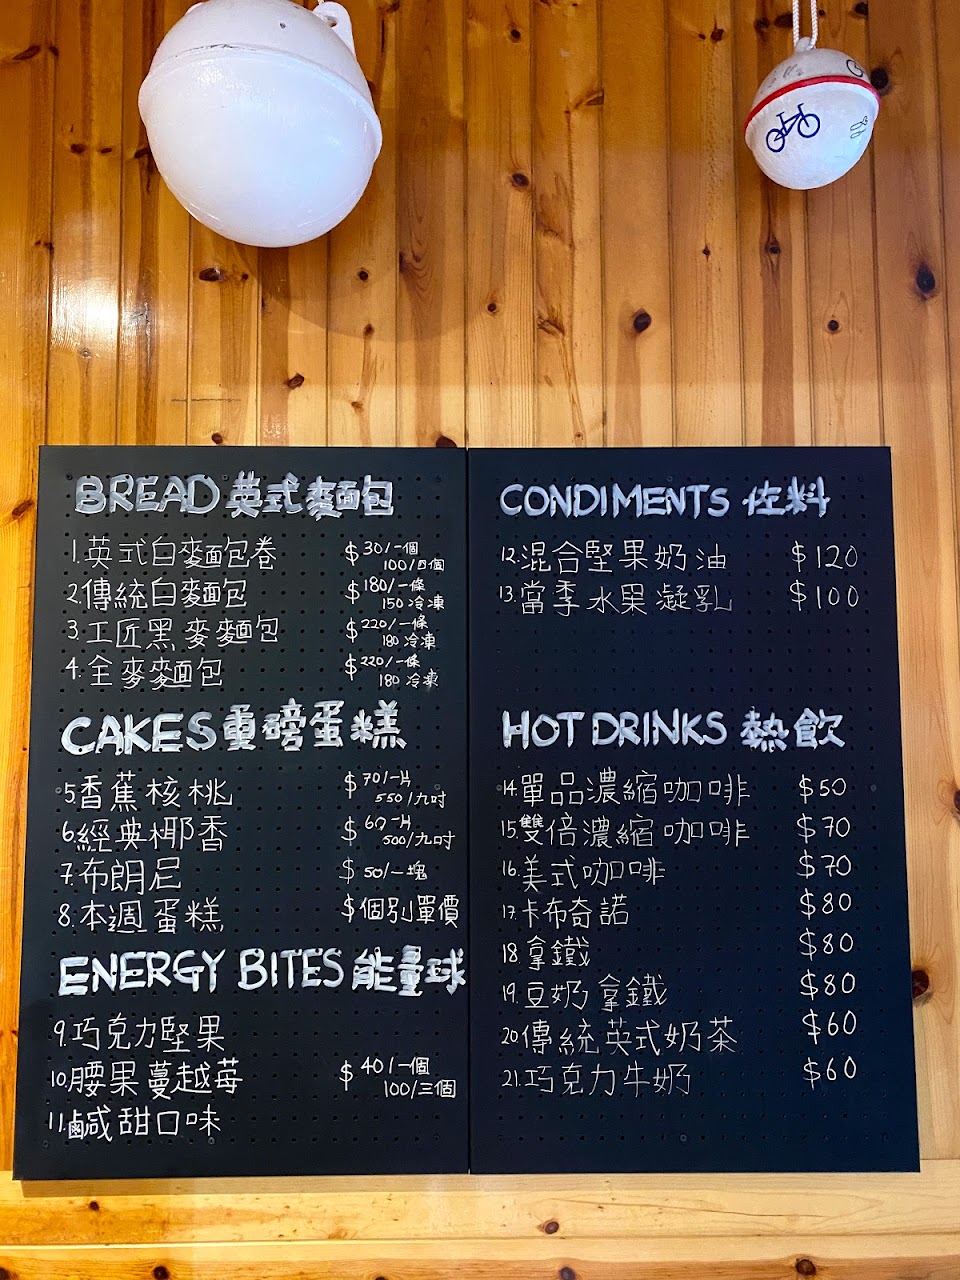 BREAD 英式麥麵包
1.英式白麥麵包卷 $30/一個
100/四個
2.傳統白麥麵包 $180/一條
150 冷凍
3.工匠黑麥麥麵包 $220/一條
180 冷凍
4.全麥麥麵包 $220/一條
180 冷凍
CAKES 重磅蛋糕
5.香蕉核桃 $70/一片
550/九吋
6.經典椰香 $60/一片
500/九吋
7.布朗尼 $50/一塊
8.本週蛋糕 $個別單價
ENERGY BITES 能量球
9.巧克力堅果
10.腰果蔓越莓 $40/一個
100/三個
11.鹹甜口味
CONDIMENTS 佐料
12.混合堅果奶油 $120
13.當季水果凝乳 $100
HOT DRINKS 熱飲
14.單品濃縮咖啡 $50
15.雙倍濃縮咖啡 $70
16.美式咖啡 $70
17.卡布奇諾 $80
18.拿鐵 $80
19.豆奶拿鐵 $80
20.傳統英式奶茶 $60
21.巧克力牛奶 $60